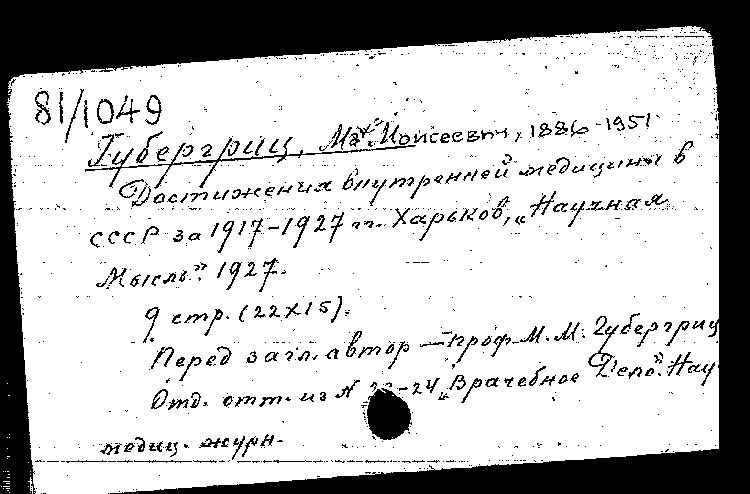 81/1049
Губергриц, Макс Моисеевич, 1886-1951
Достижения внутренней медицины в
СССР за 1917-1927 гг. Харьков, „Научная
Мысль". 1927.
9 стр. (22х15).
Перед загл. автор — проф. М. М. Губергриц
Отд. отт. из № -24 „Врачебное Дело". Науч
медиц. журн.